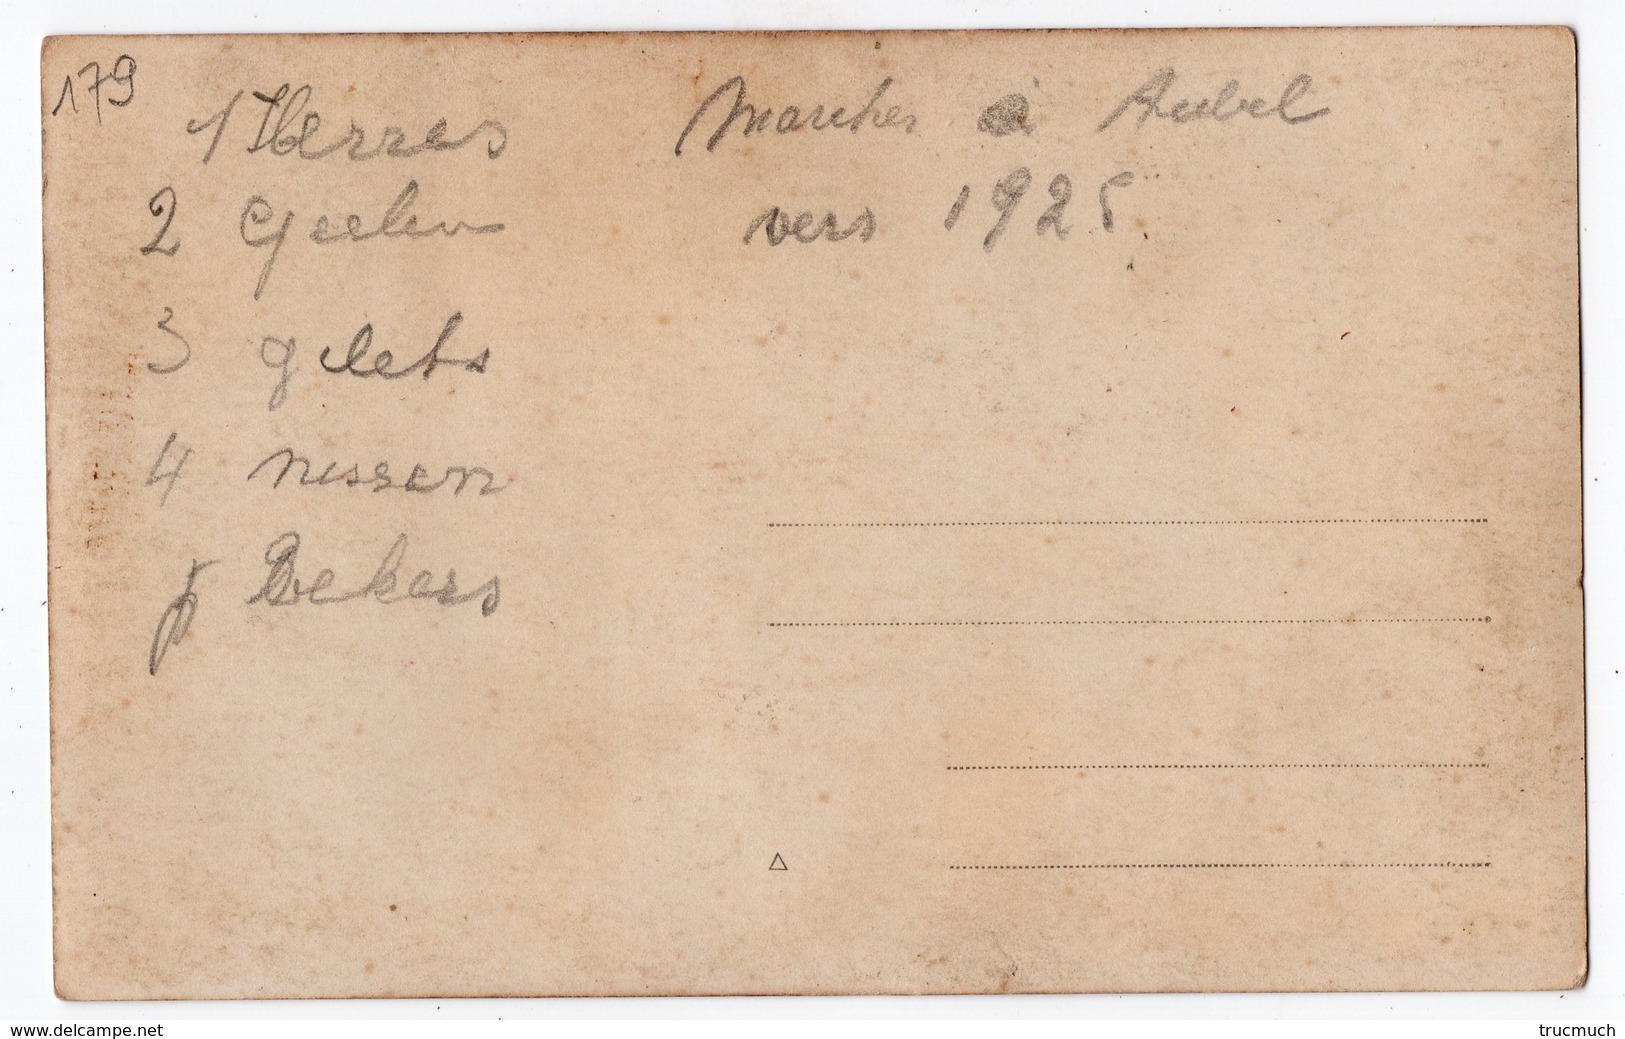 179
1 Herres
2 Geelen
3 gilets
4 nissen
5 Bekers
Marcher à Aubel
vers 1925
delcampe.net
trucmuch